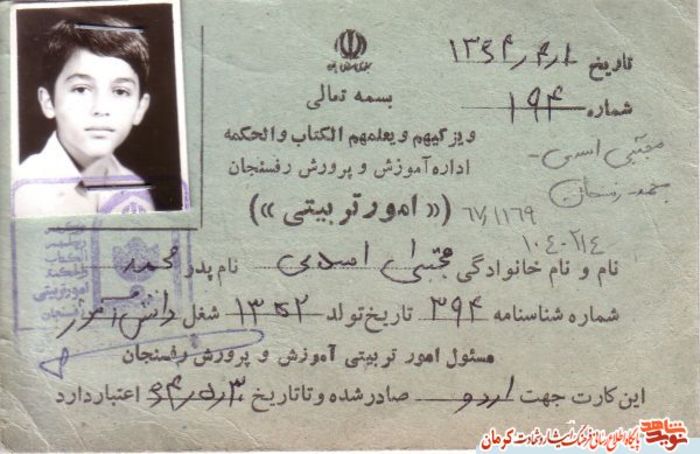 تاریخ ۱۳۶۴/۴/۱
شماره ۱۹۴
بسمه تعالی
ویزکیهم ویعلمهم الکتاب والحکمه
اداره آموزش و پرورش رفسنجان
(« امور تربیتی »)
مجتبی اسدی
۶۷/۱۱۶۹
۱۰۴۰۲۱۴
نام و نام خانوادگی مجتبی اسدی نام پدر محمد
شماره شناسنامه ۳۹۴ تاریخ تولد ۱۳۵۲ شغل دانش آموز
مسئول امور تربیتی آموزش و پرورش رفسنجان
این کارت جهت اردو صادر شده و تا تاریخ ۶۴/۵/۳۰ اعتبار دارد
الکتاب
امور تربیتی
رفسنجان
نوید شاهد
پایگاه اطلاع رسانی فرهنگ ایثار و شهادت کرمان